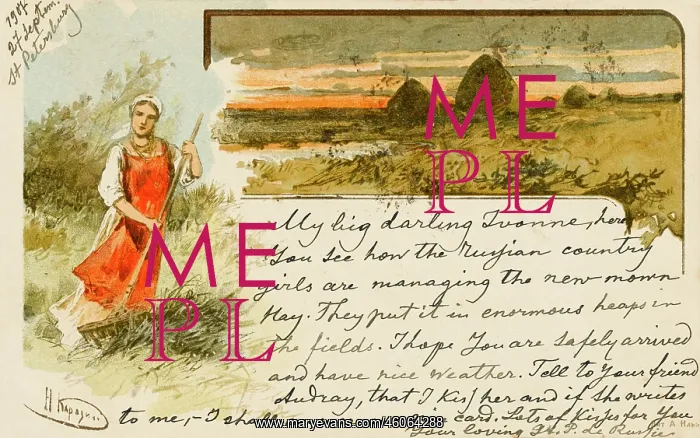 1904
27 Septem.
St Petersburg
My big darling Ivonne, here
You see how the Russian country
girls are managing the new mown
Hay. They put it in enormous heaps in
the fields. I hope You are safely arrived
and have nice weather. Tell to Your friend
Audray, that I kiss her and if she writes
to me,- I shall card. Lots of Kisses for You
Your loving
ME
PL
ME
PL
Н Каразин
www.maryevans.com/46064288